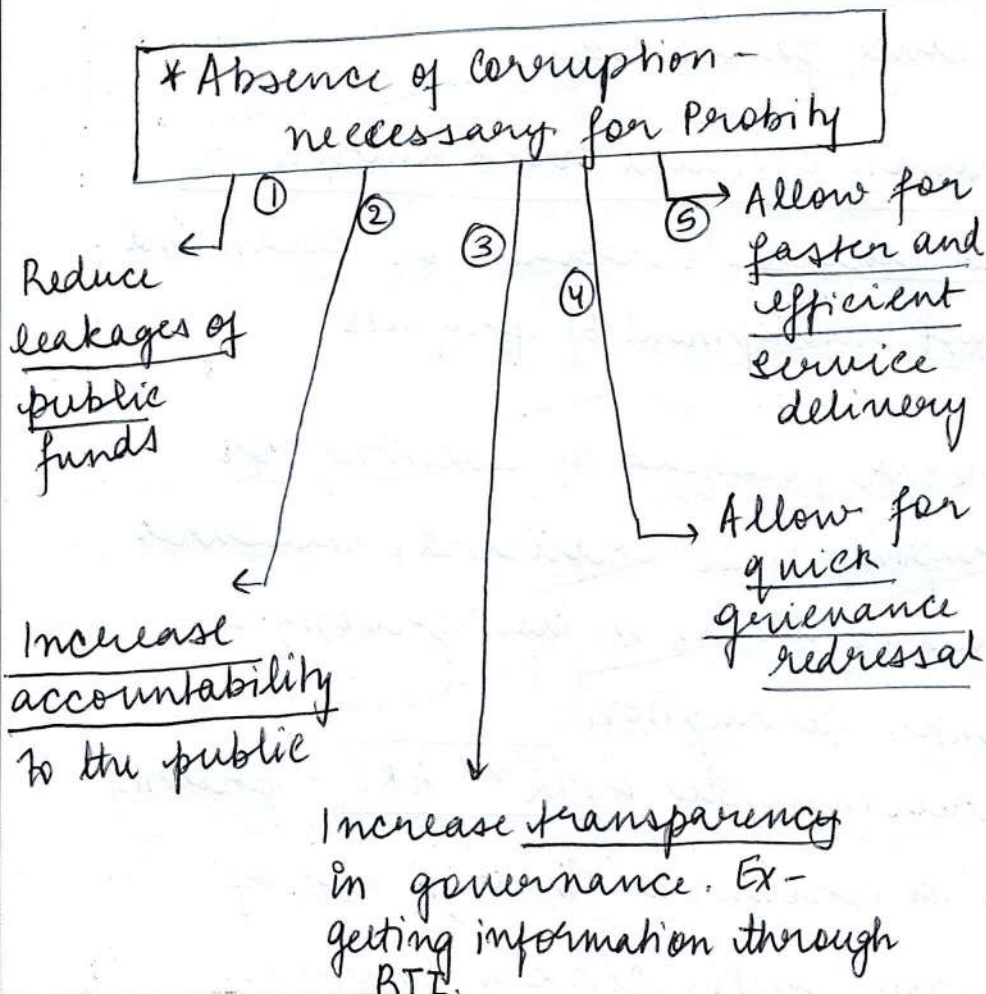 * Absence of corruption -
neccessary for Probity
①
Reduce
leakages of
public
funds
②
Increase
accountability
to the public
③
Increase transparency
in governance. Ex-
getting information through
RTI.
④
Allow for
quick
grievance
redressal
⑤
Allow for
faster and
efficient
service
delivery